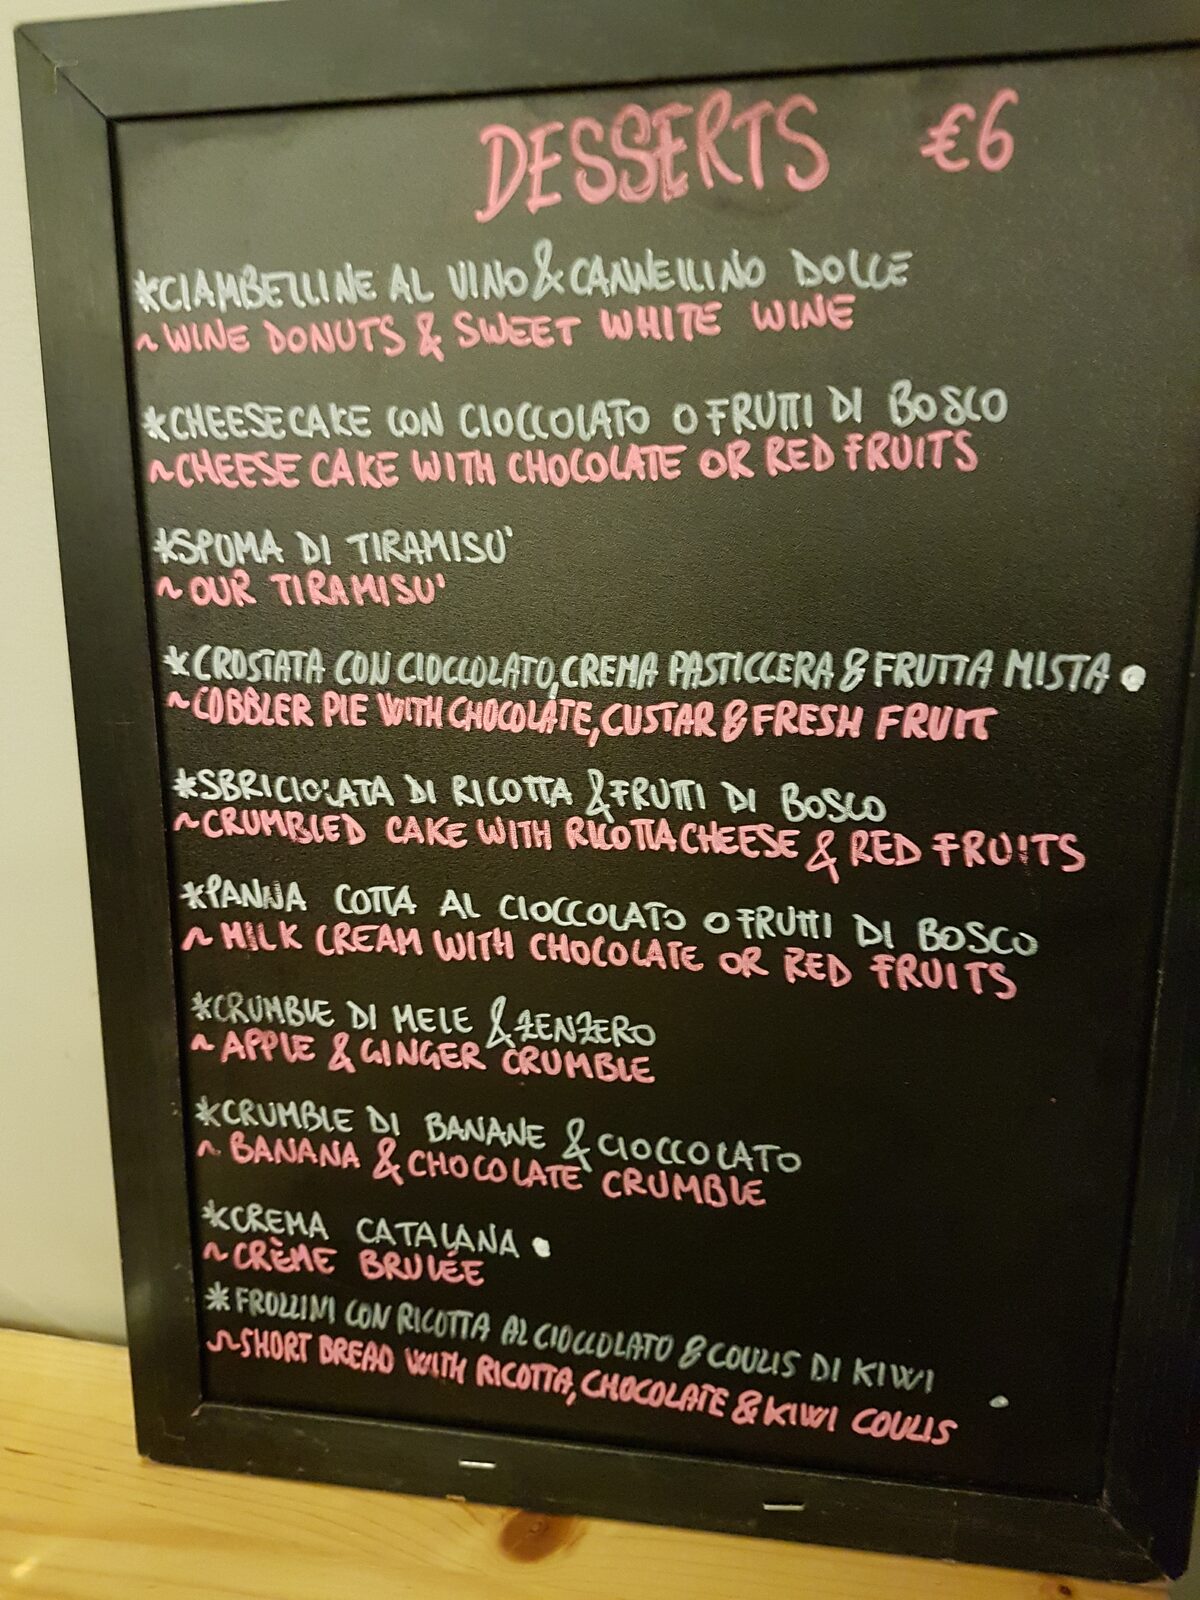 DESSERTS €6
*CIAMBELLINE AL VINO & CANNELLINO DOLCE
~ WINE DONUTS & SWEET WHITE WINE
*CHEESECAKE CON CIOCCOLATO O FRUTTI DI BOSCO
~CHEESE CAKE WITH CHOCOLATE OR RED FRUITS
*SPUMA DI TIRAMISU'
~ OUR TIRAMISU'
*CROSTATA CON CIOCCOLATO, CREMA PASTICCERA & FRUTTA MISTA •
~COBBLER PIE WITH CHOCOLATE, CUSTAR & FRESH FRUIT
*SBRICIOLATA DI RICOTTA & FRUTTI DI BOSCO
~CRUMBLED CAKE WITH RICOTTA CHEESE & RED FRUITS
*PANNA COTTA AL CIOCCOLATO O FRUTTI DI BOSCO
~ MILK CREAM WITH CHOCOLATE OR RED FRUITS
*CRUMBLE DI MELE & ZENZERO
~ APPLE & GINGER CRUMBLE
*CRUMBLE DI BANANE & CIOCCOLATO
~ BANANA & CHOCOLATE CRUMBLE
*CREMA CATALANA •
~CRÈME BRULÉE
*FROLLINI CON RICOTTA AL CIOCCOLATO & COULIS DI KIWI
~SHORT BREAD WITH RICOTTA, CHOCOLATE & KIWI COULIS